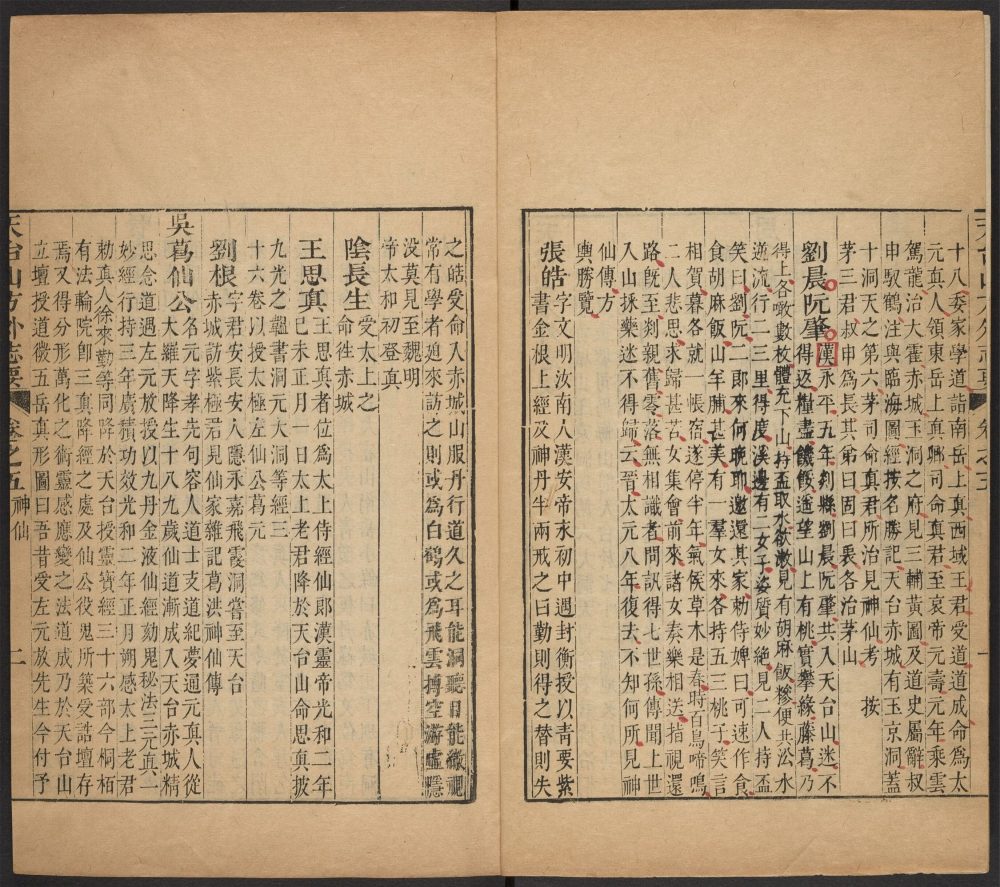 十八委家學道詣南岳上真西城王君受道道成命爲太
元真人領東岳上真卿司命真君至哀帝元壽元年乘雲
駕龍治大霍赤城玉洞之府見三輔黃圖及道史屬辭叔
申馭鶴注與臨海圖經按名勝記天台赤城有玉京洞蓋
十洞天之第六茅司命真君所治見神仙考 按
茅三君叔申爲長其弟曰固曰衷各治茅山
劉晨阮肇漢永平五年剡縣劉晨阮肇共入天台山迷不
得返糧盡饑餒遥望山上有桃實攀緣藤葛乃
得上各噉數枚體充下山持盃取水欲漱見有胡麻飯糝便共汲水
逆流行二三里得度溪邊有二女子姿質妙絶見二人持盃
笑曰劉阮二郎來何晚耶邀還其家勅侍婢曰可速作食
食胡麻飯山羊脯甚美有一羣女來各持五三桃子笑言
相賀暮各就一帳宿遂停半年氣候草木是春時百鳥啼鳴
二人悲思求歸甚苦女集會前來諸女奏樂相送指視還
路既至剡親舊零落無相識者問訊得七世孫傳聞上世
入山採藥迷不得歸云晉太元八年復去不知何所見神
仙傳方
輿勝覽
張皓字文明汝南人漢安帝永初中遇封衡授以青要紫
書金根上經及神丹半兩戒之曰勤則得之替則失
之皓受命入赤城山服丹行道久之耳能洞聽目能徹視
常有學者追來訪之則或爲白鶴或爲飛雲摶空游虛隱
没莫見至魏明
帝太和初登真
陰長生受太上之
命徃赤城
王思真王思真者位爲太上侍經仙郎漢靈帝光和二年
巳未正月一日太上老君降於天台山命思真披
九光之韞書洞元大洞等經三
十六卷以授太極左仙公葛元
劉根字君安長安人隱永嘉飛霞洞嘗至天台
赤城訪紫極君見仙家雜記葛洪神仙傳
吳葛仙公大羅天降生十八九歲仙道漸成入天台赤城精
名元字孝先句容人道士支道紀夢通元真人從
思念道遇左元放授以九丹金液仙經劾鬼秘法三元真一
妙經行持三年廣積功效光和二年正月朔感太上老君
勅真人徐來勤等同降於天台授靈寶經三十六部今桐栢
有法輪院卽三真降經之處及仙公役鬼所築受誥壇存
焉又得分形萬化之術靈感應變之法道成乃於天台山
立壇授道微五岳真形圖曰吾昔受左元放先生今付予
天台山方外志要 卷之五 神仙 二